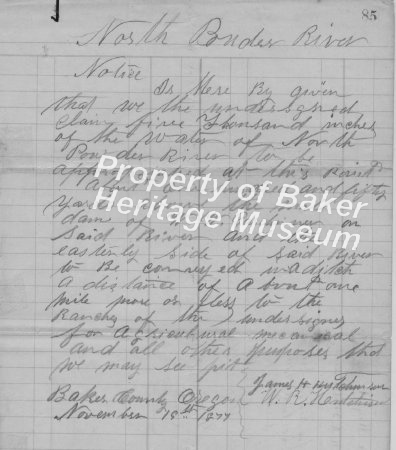 85
North Powder River
Notice
Is Here By given
that we the undersigned
claim five Thousand inches
of the Water of North
Powder River to be
at this Point
About and fifty
yards
dam of on
Said River and
easterly Side of Said River
to Be conveyed in a ditch
a distance of About one
mile more or less to the
Ranches of the undersigned
for Agricultural mecanical
and all other Purposes that
we may see fit
James H Hutchinson
W. R. Hutchinson
Baker County Oregon
November 1877
Property of Baker
Heritage Museum